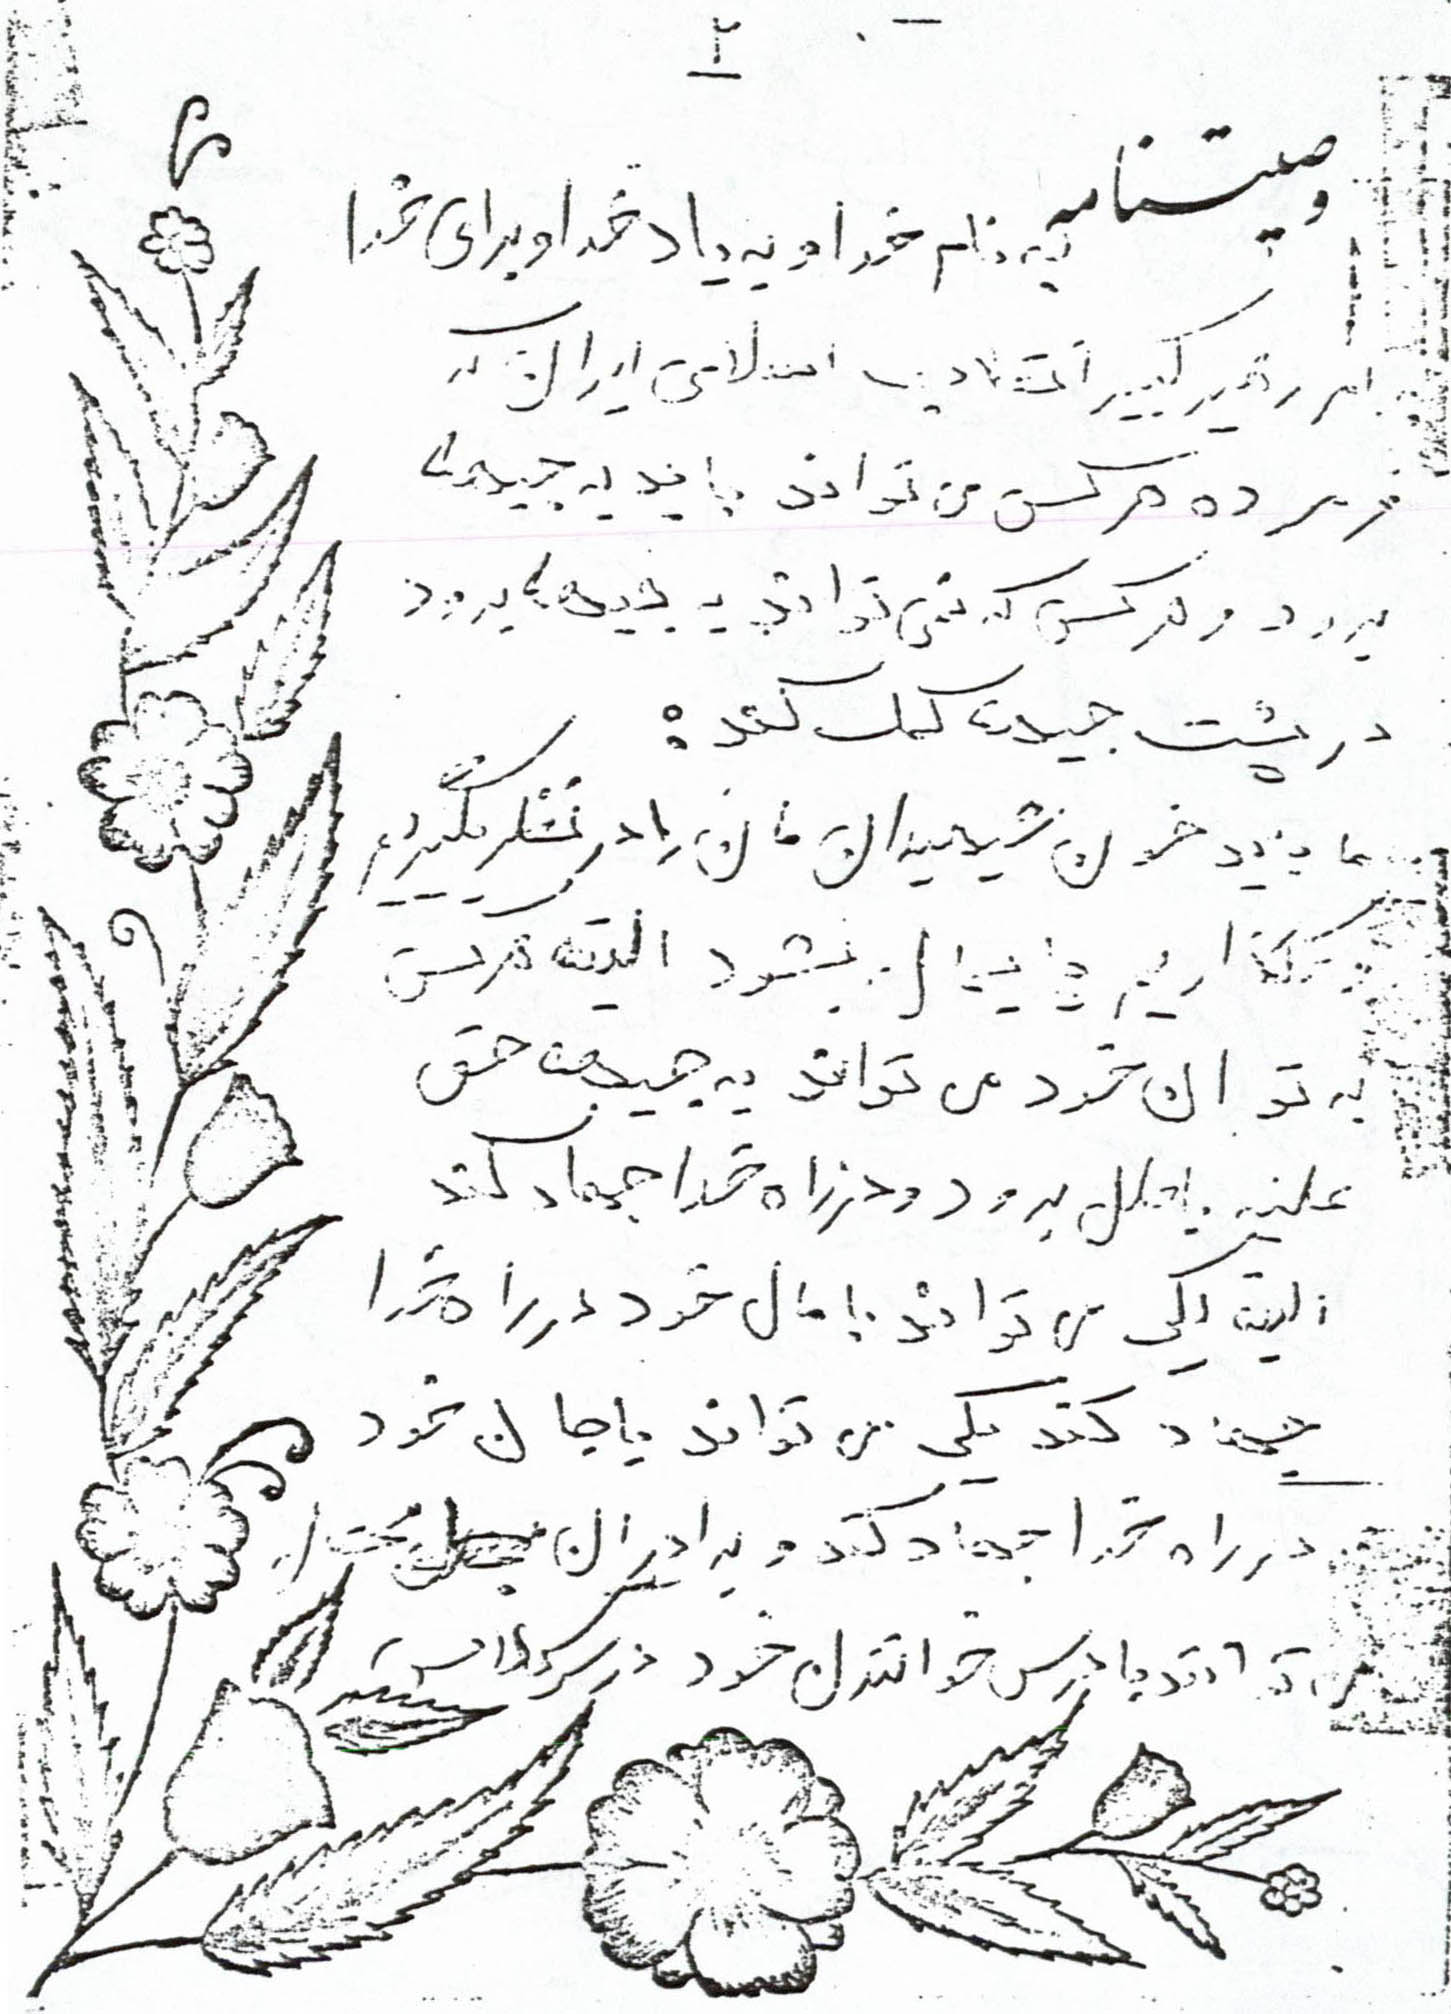 ۲
وصیتنامه
به نام خدا و به یاد خدا و برای خدا
امر رهبر کبیر انقلاب اسلامی ایران که
فرموده هر کس می تواند باید به جبهه
برود و هر کس که نمی تواند به جبهه برود
در پشت جبهه کمک کند
ما باید خون شهیدان مان را در نظر بگیریم
نگذاریم پایمال بشود البته هر کس
به توان خود می تواند به جبهه حق
علیه باطل برود و در راه خدا جهاد کند
البته یکی می تواند با مال خود در راه خدا
جهاد کند یکی می تواند با جان خود
در راه خدا جهاد کند و برادران
می توانند با درس خواندن خود در